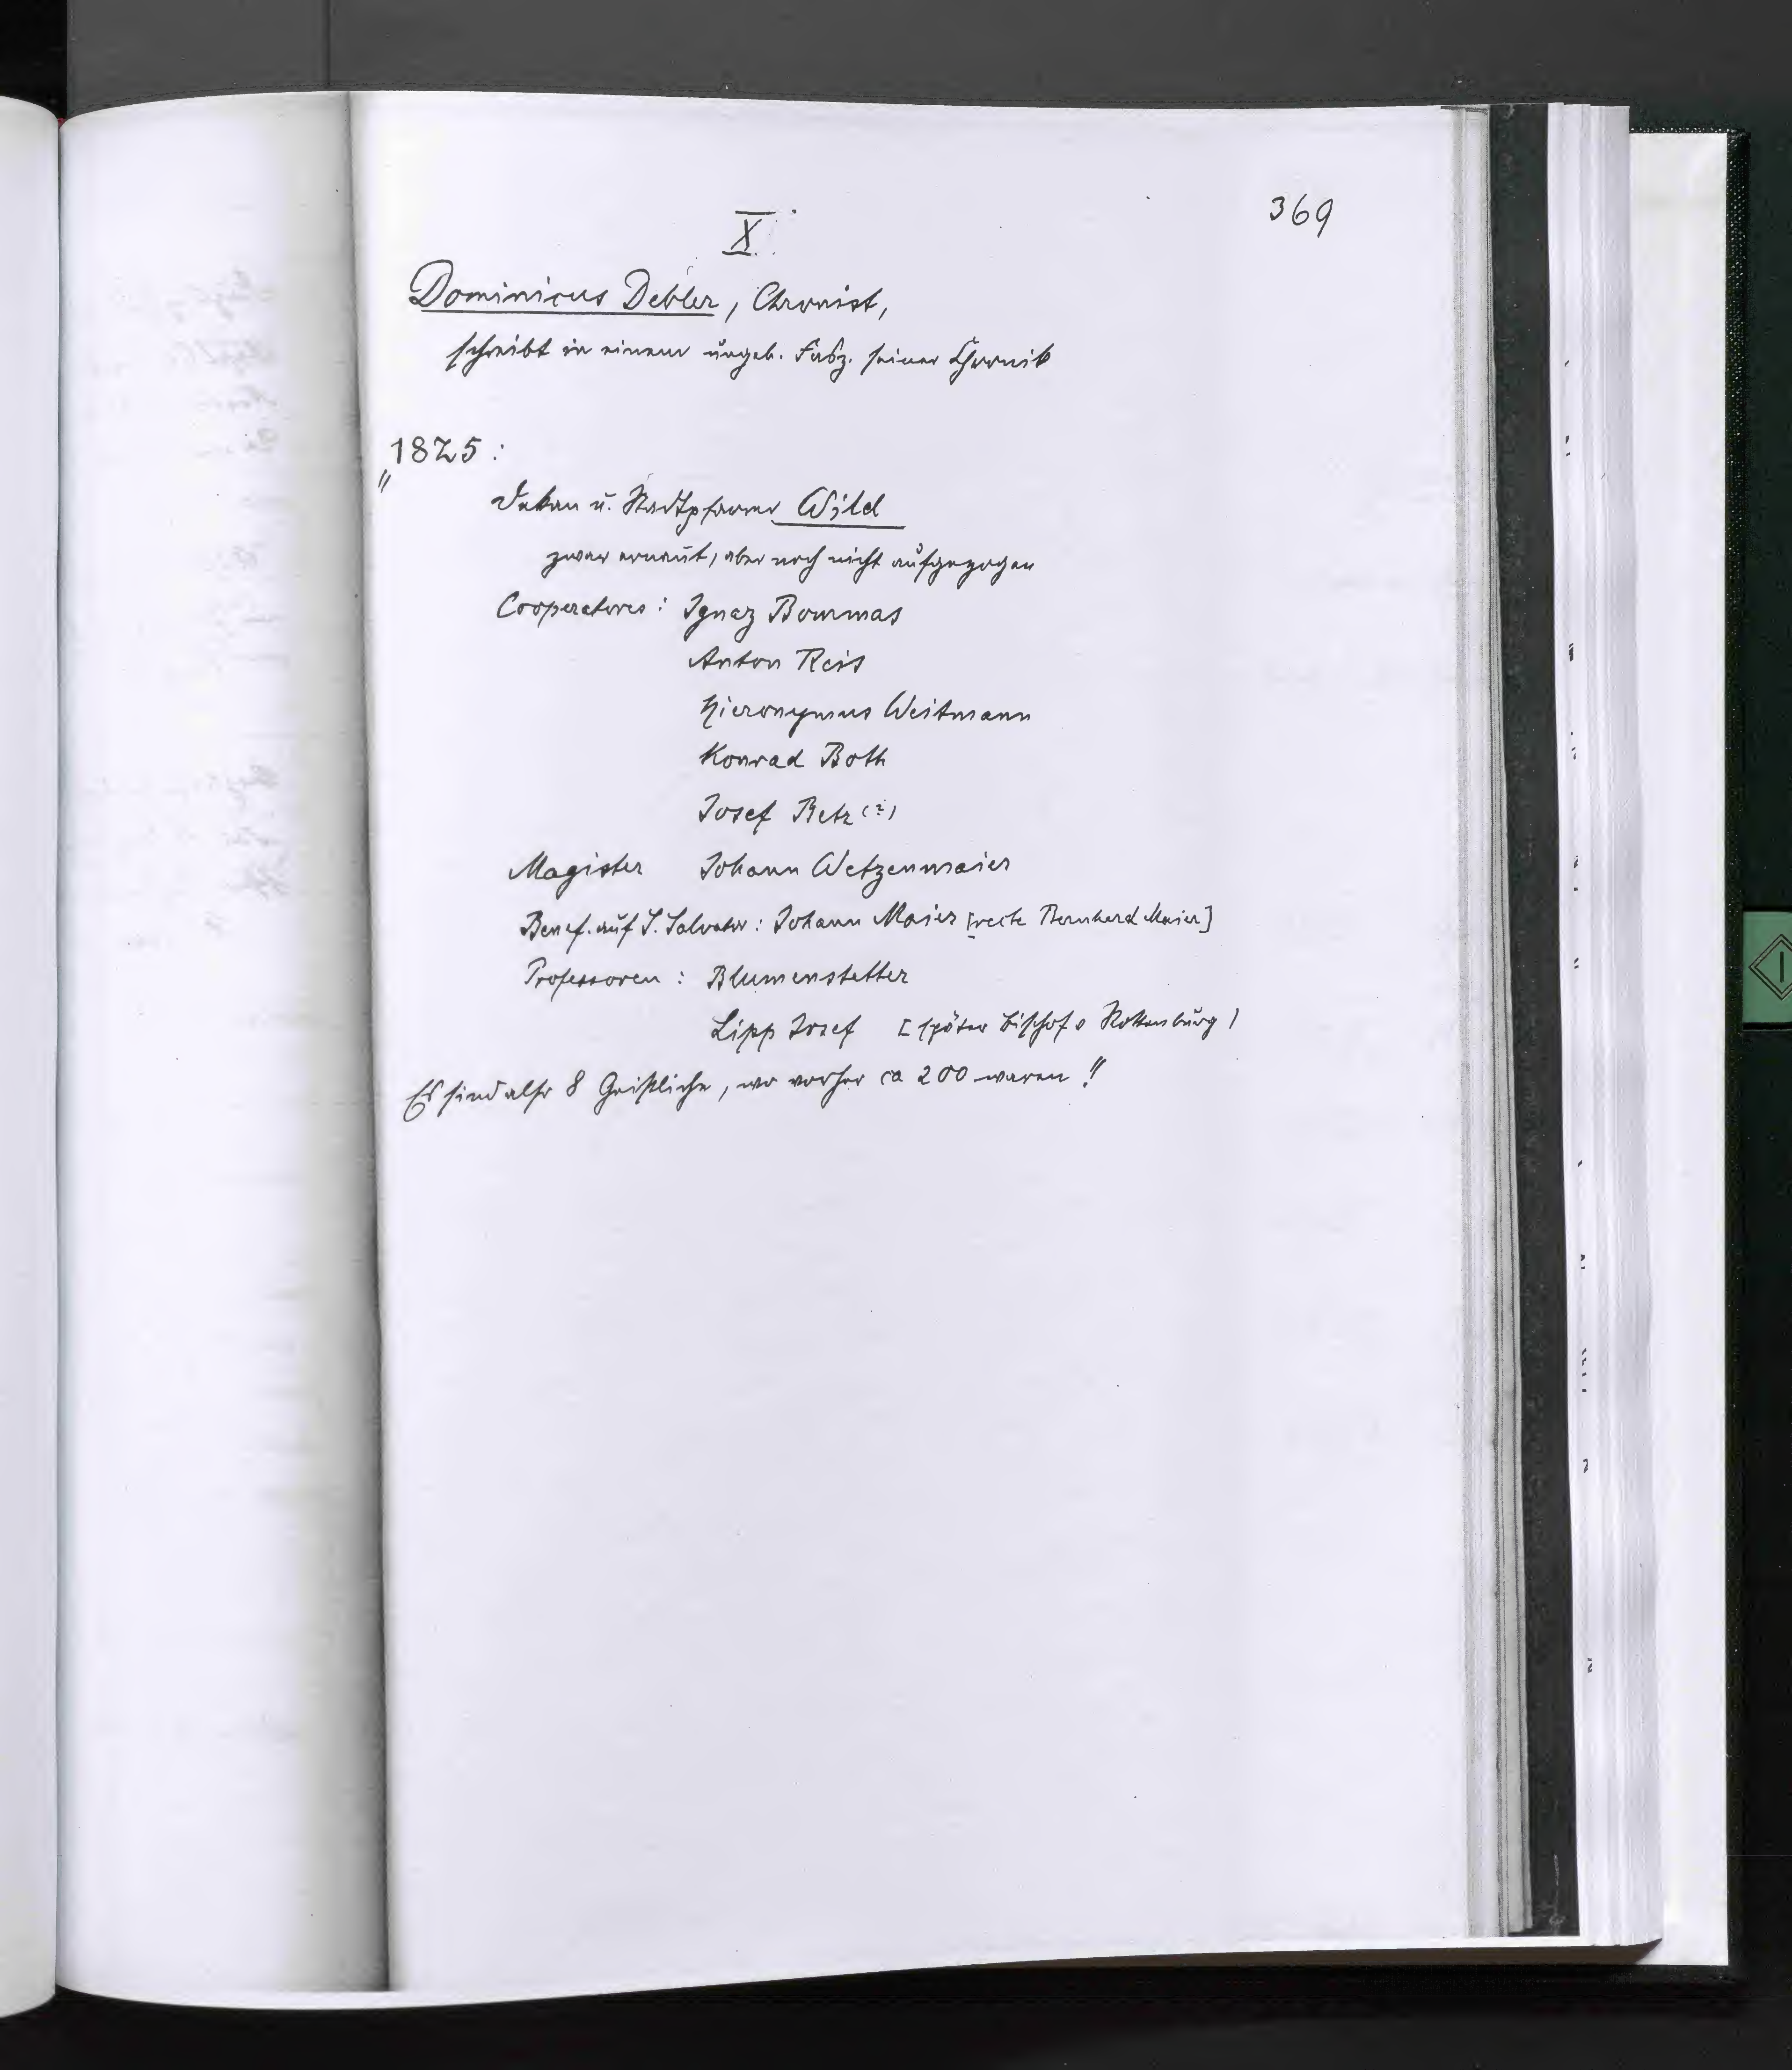 369
X.
Dominicus Debler, Chronist,
schreibt in einem ungeb. Fasz. seiner Chronik
"1825:
Dekan u. Stadtpfarrer Wild
zwar ernannt, aber noch nicht aufgezogen
Cooperatores: Ignaz Bommas
Anton Reis
Hieronymus Weitmann
Konrad Both
Josef Betz (?)
Magister Johann Wetzenmaier
Benef. auf S. Salvator: Johann Maier [recte Bernhard Maier]
Professoren: Blumenstetter
Lipp Josef [später Bischof v Rottenburg)
Es sind also 8 Geistliche, wo vorher ca 200 waren!"